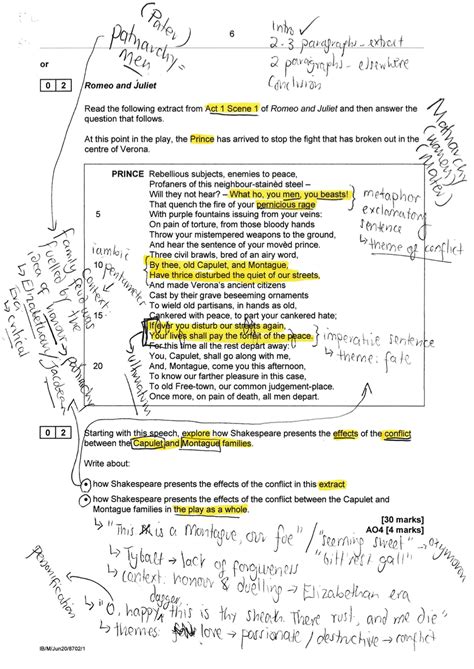 (Pater)
patriarchy =
men
6
Intro ✓
2-3 paragraphs - extract
2 paragraphs - elsewhere
Conclusion
or
0 2 Romeo and Juliet
Read the following extract from Act 1 Scene 1 of Romeo and Juliet and then answer the
question that follows.
At this point in the play, the Prince has arrived to stop the fight that has broken out in the
centre of Verona.
Matriarchy
(women)
(Mater)
PRINCE Rebellious subjects, enemies to peace,
Profaners of this neighbour-stainèd steel –
Will they not hear? – What ho, you men, you beasts!
That quench the fire of your pernicious rage
5 With purple fountains issuing from your veins:
On pain of torture, from those bloody hands
Throw your mistempered weapons to the ground,
And hear the sentence of your movèd prince.
Three civil brawls, bred of an airy word,
10 By thee, old Capulet, and Montague,
Have thrice disturbed the quiet of our streets,
And made Verona's ancient citizens
Cast by their grave beseeming ornaments
To wield old partisans, in hands as old,
15 Cankered with peace, to part your cankered hate;
If ever you disturb our streets again,
Your lives shall pay the forfeit of the peace.
For this time all the rest depart away:
You, Capulet, shall go along with me,
20 And, Montague, come you this afternoon,
To know our farther pleasure in this case,
To old Free-town, our common judgement-place.
Once more, on pain of death, all men depart.
metaphor
exclamatory
sentence
↳ theme of conflict
iambic
pentameter
context
family feud
fuelled by the
idea of honour
↳ Elizabethan/Jacobean
Era
↳ patriarchy
critical
↳ ultimatum
imperative sentence
↳ theme: fate
0 2 Starting with this speech, explore how Shakespeare presents the effects of the conflict
between the Capulet and Montague families.
Write about:
• how Shakespeare presents the effects of the conflict in this extract
• how Shakespeare presents the effects of the conflict between the Capulet and
Montague families in the play as a whole.
[30 marks]
AO4 [4 marks]
↳ "This is a Montague, our foe" / "seeming sweet" → oxymoron
"bitt'rest gall"
↳ Tybalt → lack of forgiveness
↳ context: honour & duelling → Elizabethan era
personification
dagger,
↳ "O, happy this is thy sheath. There rust, and me die"
↳ themes: love → passionate / destructive → conflict
IB/M/Jun20/8702/1